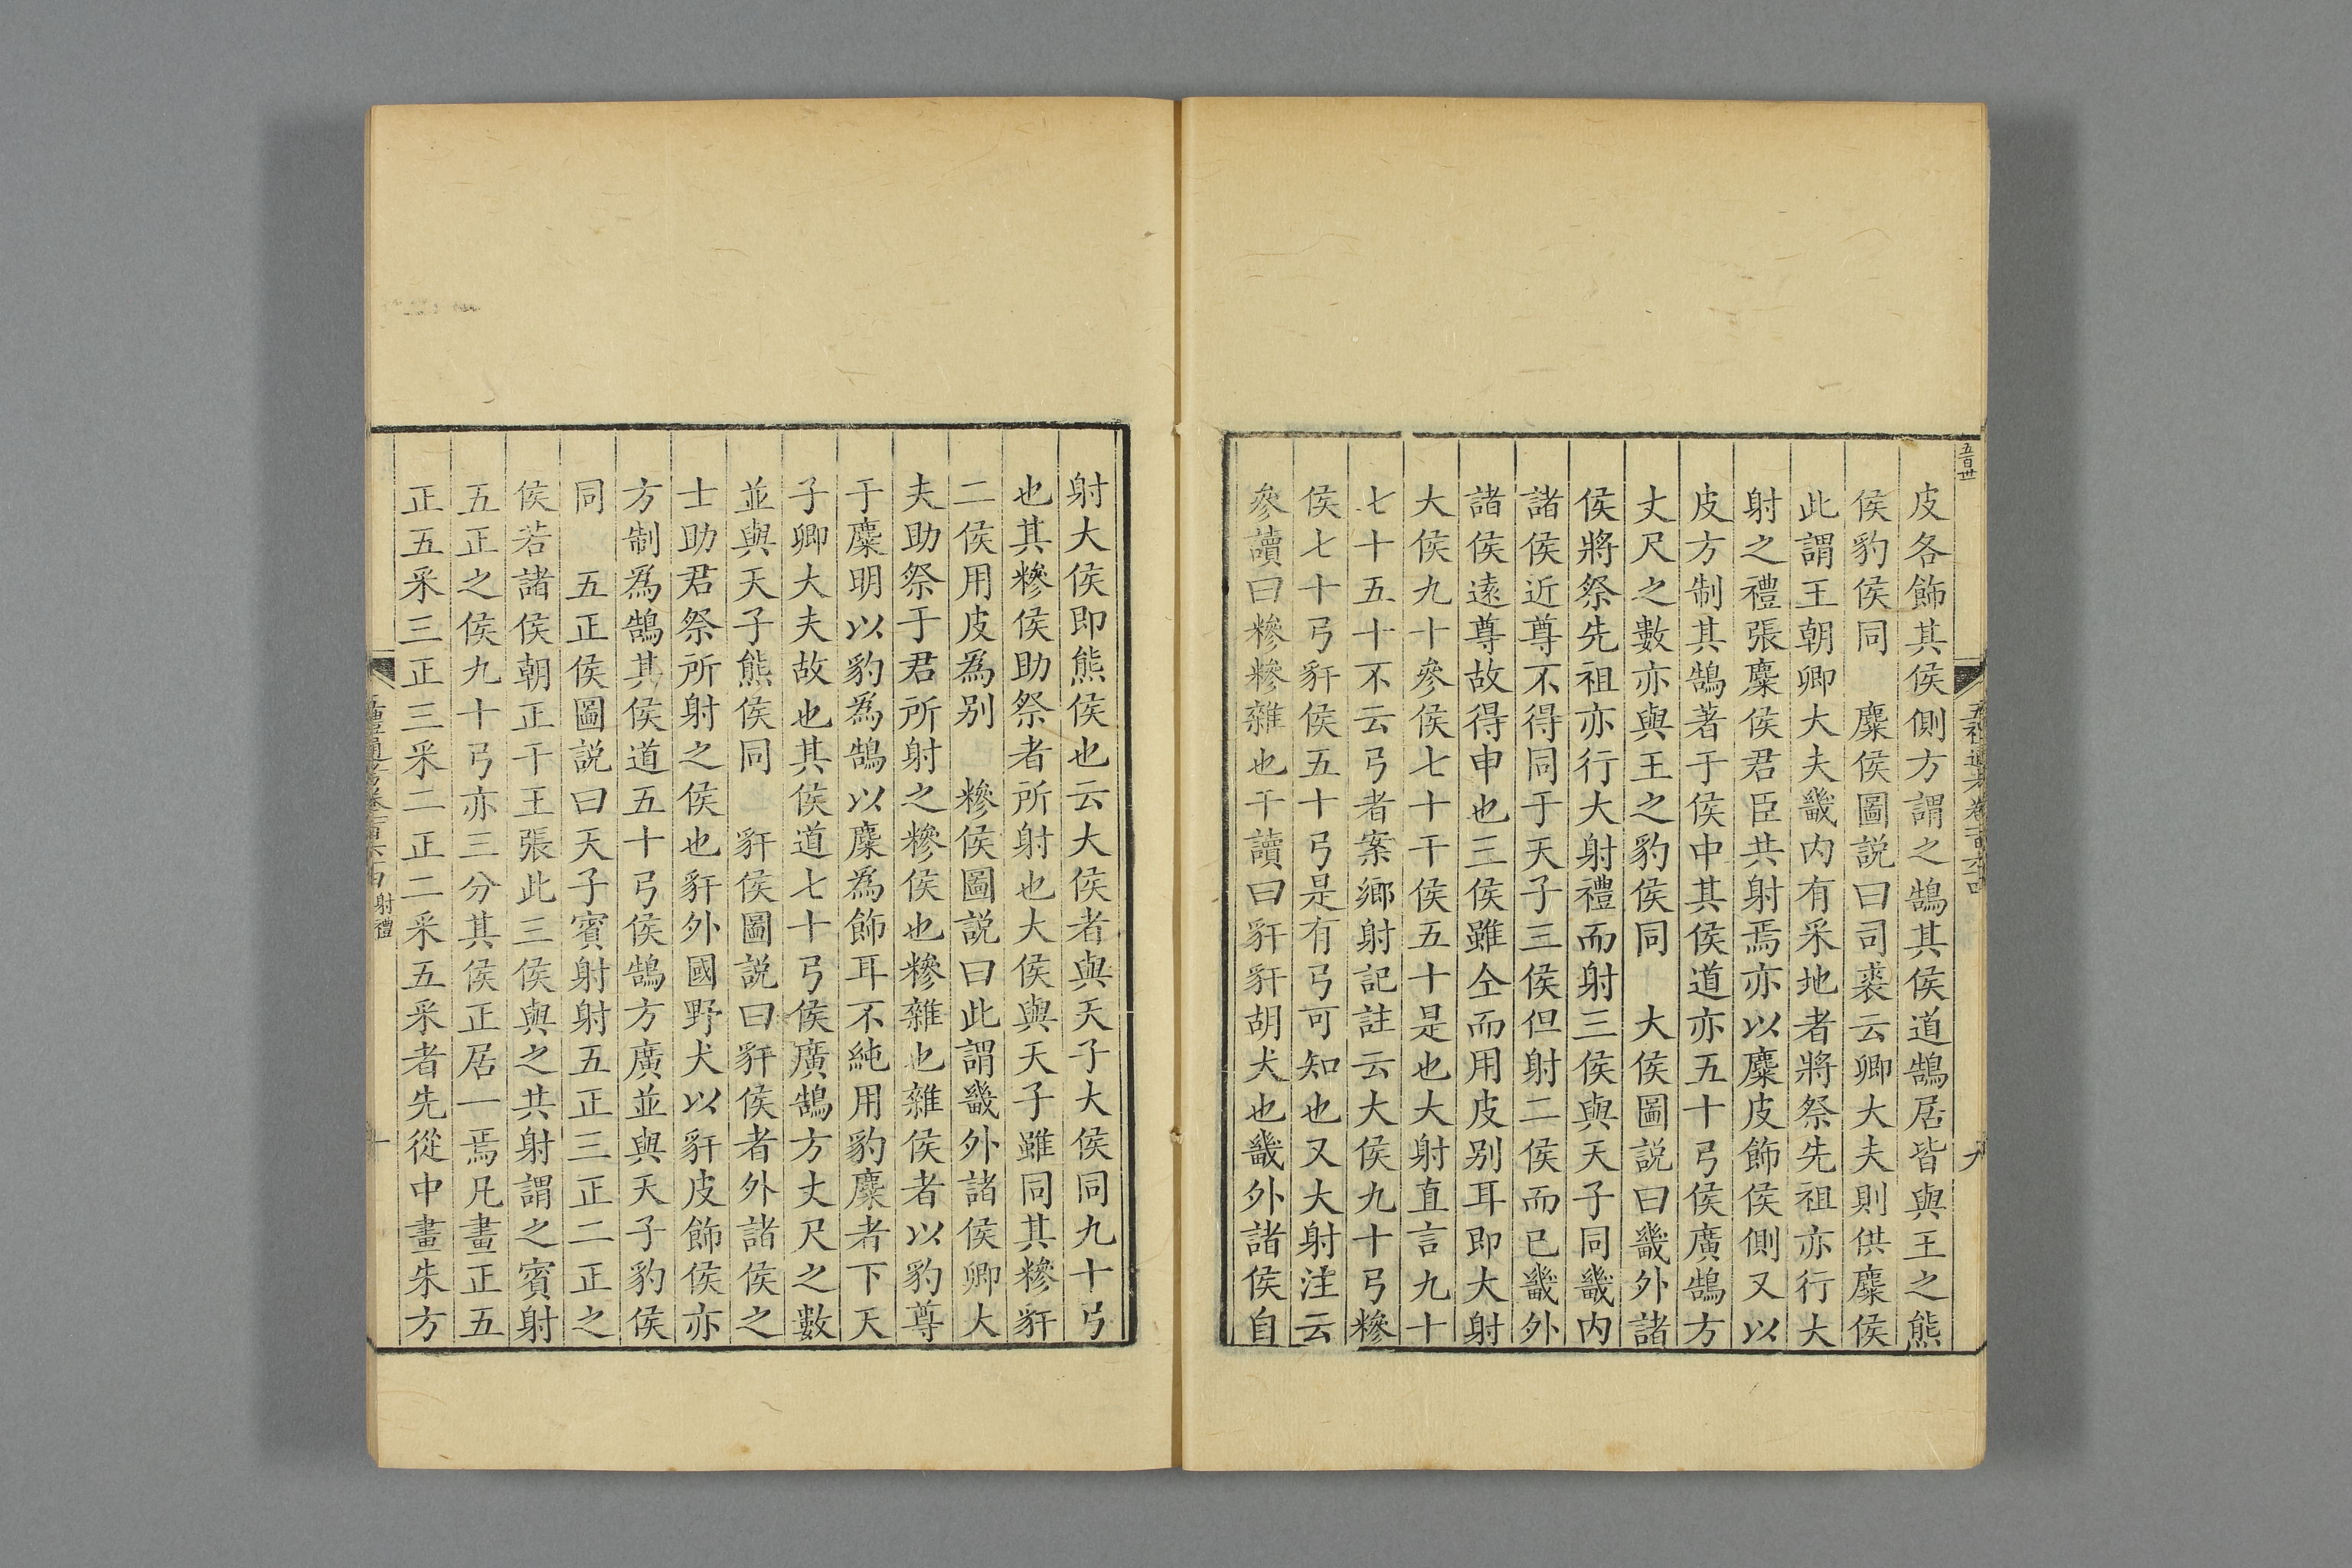 五百卅
九
皮各飾其侯側方謂之鵠其侯道鵠居皆與王之熊
侯豹侯同　麋侯圖説曰司裘云卿大夫則供麋侯
此謂王朝卿大夫畿内有采地者將祭先祖亦行大
射之禮張麋侯君臣共射焉亦以麋皮飾侯側又以
皮方制其鵠著于侯中其侯道亦五十弓侯廣鵠方
丈尺之數亦與王之豹侯同　大侯圖説曰畿外諸
侯將祭先祖亦行大射禮而射三侯與天子同畿内
諸侯近尊不得同于天子三侯但射二侯而已畿外
諸侯遠尊故得申也三侯雖仝而用皮别耳即大射
大侯九十參侯七十干侯五十是也大射直言九十
七十五十不云弓者案鄉射記註云大侯九十弓糝
侯七十弓豻侯五十弓是有弓可知也又大射注云
參讀曰糝糝雜也干讀曰豻豻胡犬也畿外諸侯自
射大侯即熊侯也云大侯者與天子大侯同九十弓
也其糝侯助祭者所射也大侯與天子雖同其糝豻
二侯用皮爲别　糝侯圖説曰此謂畿外諸侯卿大
夫助祭于君所射之糝侯也糝雜也雜侯者以豹尊
于麋明以豹爲鵠以麋爲飾耳不純用豹麋者下天
子卿大夫故也其侯道七十弓侯廣鵠方丈尺之數
並與天子熊侯同　豻侯圖説曰豻侯者外諸侯之
士助君祭所射之侯也豻外國野犬以豻皮飾侯亦
方制爲鵠其侯道五十弓侯鵠方廣並與天子豹侯
同　五正侯圖説曰天子賓射射五正三正二正之
侯若諸侯朝正于王張此三侯與之共射謂之賓射
五正之侯九十弓亦三分其侯正居一焉凡畫正五
正五采三正三采二正二采五采者先從中畫朱方
射禮
十